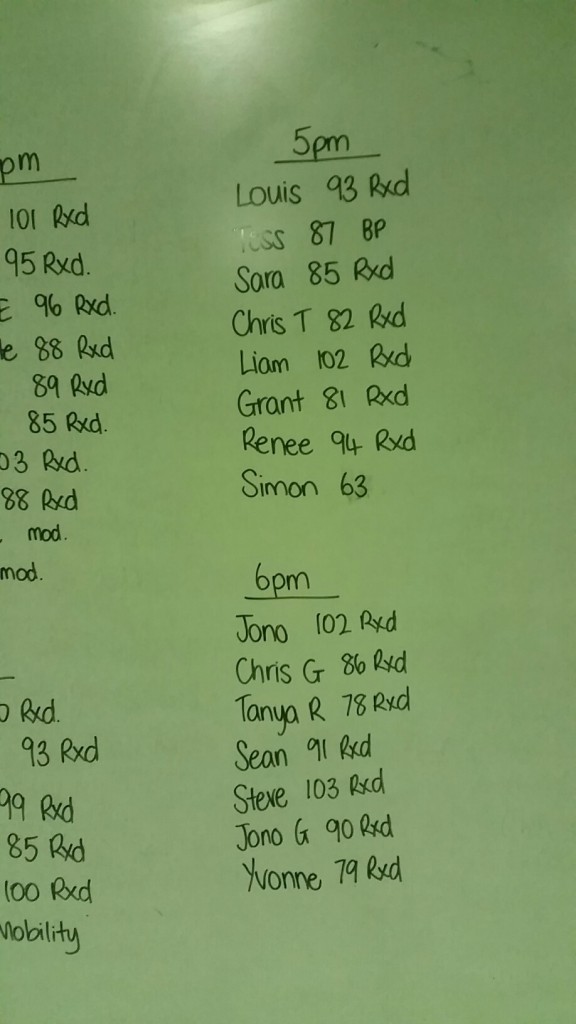 pm
101 Rxd
95 Rxd.
E 96 Rxd.
e 88 Rxd
89 Rxd
85 Rxd.
03 Rxd.
88 Rxd
mod.
mod.
0 Rxd.
93 Rxd
99 Rxd
85 Rxd
100 Rxd
Mobility
5pm
Louis 93 Rxd
Tess 87 BP
Sara 85 Rxd
Chris T 82 Rxd
Liam 102 Rxd
Grant 81 Rxd
Renee 94 Rxd
Simon 63
6pm
Jono 102 Rxd
Chris G 86 Rxd
Tanya R 78 Rxd
Sean 91 Rxd
Steve 103 Rxd
Jono G 90 Rxd
Yvonne 79 Rxd